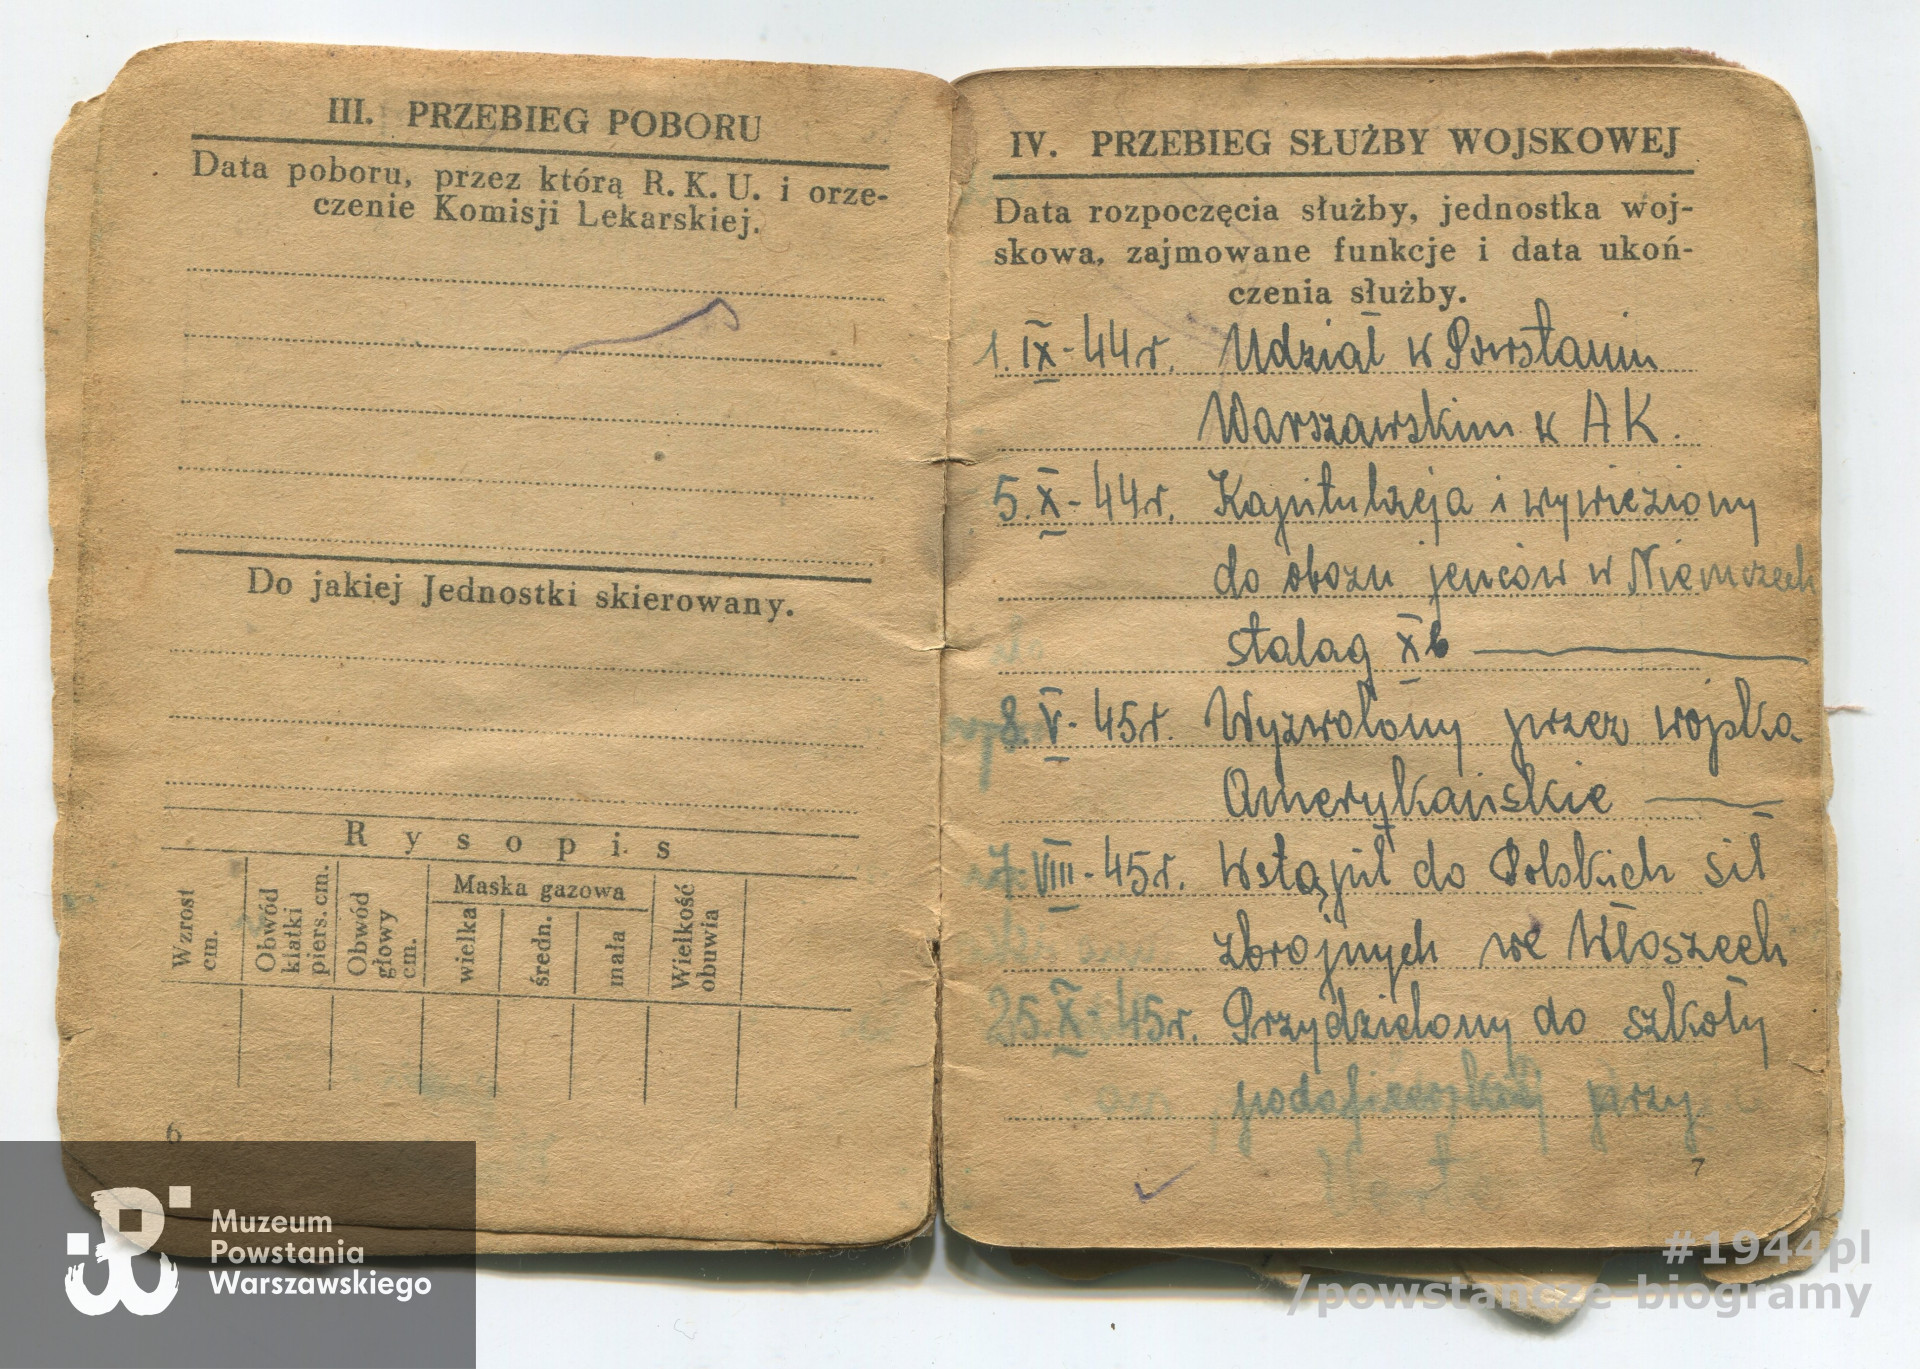 III. PRZEBIEG POBORU
Data poboru, przez którą R. K. U. i orze-
czenie Komisji Lekarskiej.
Do jakiej Jednostki skierowany.
Rysopis
Wzrost cm.
Obwód klatki piers. cm.
Obwód głowy cm.
Maska gazowa
wielka
średn.
mała
Wielkość obuwia
6
IV. PRZEBIEG SŁUŻBY WOJSKOWEJ
Data rozpoczęcia służby, jednostka woj-
skowa, zajmowane funkcje i data ukoń-
czenia służby.
1. IX - 44r. Udział w Powstaniu
Warszawskim w AK.
5. X - 44r. Kapitulacja i wywieziony
do obozu jenców w Niemczech
stalag Xb
8. V - 45r. Wyzwolony przez wojska
Amerykańskie
VIII - 45r. Wstąpił do Polskich sił
zbrojnych we Włoszech
25. X - 45r. Przydzielony do szkoły
podoficerskiej przy
7
Muzeum
Powstania
Warszawskiego
#1944pl
/powstancze-biogramy